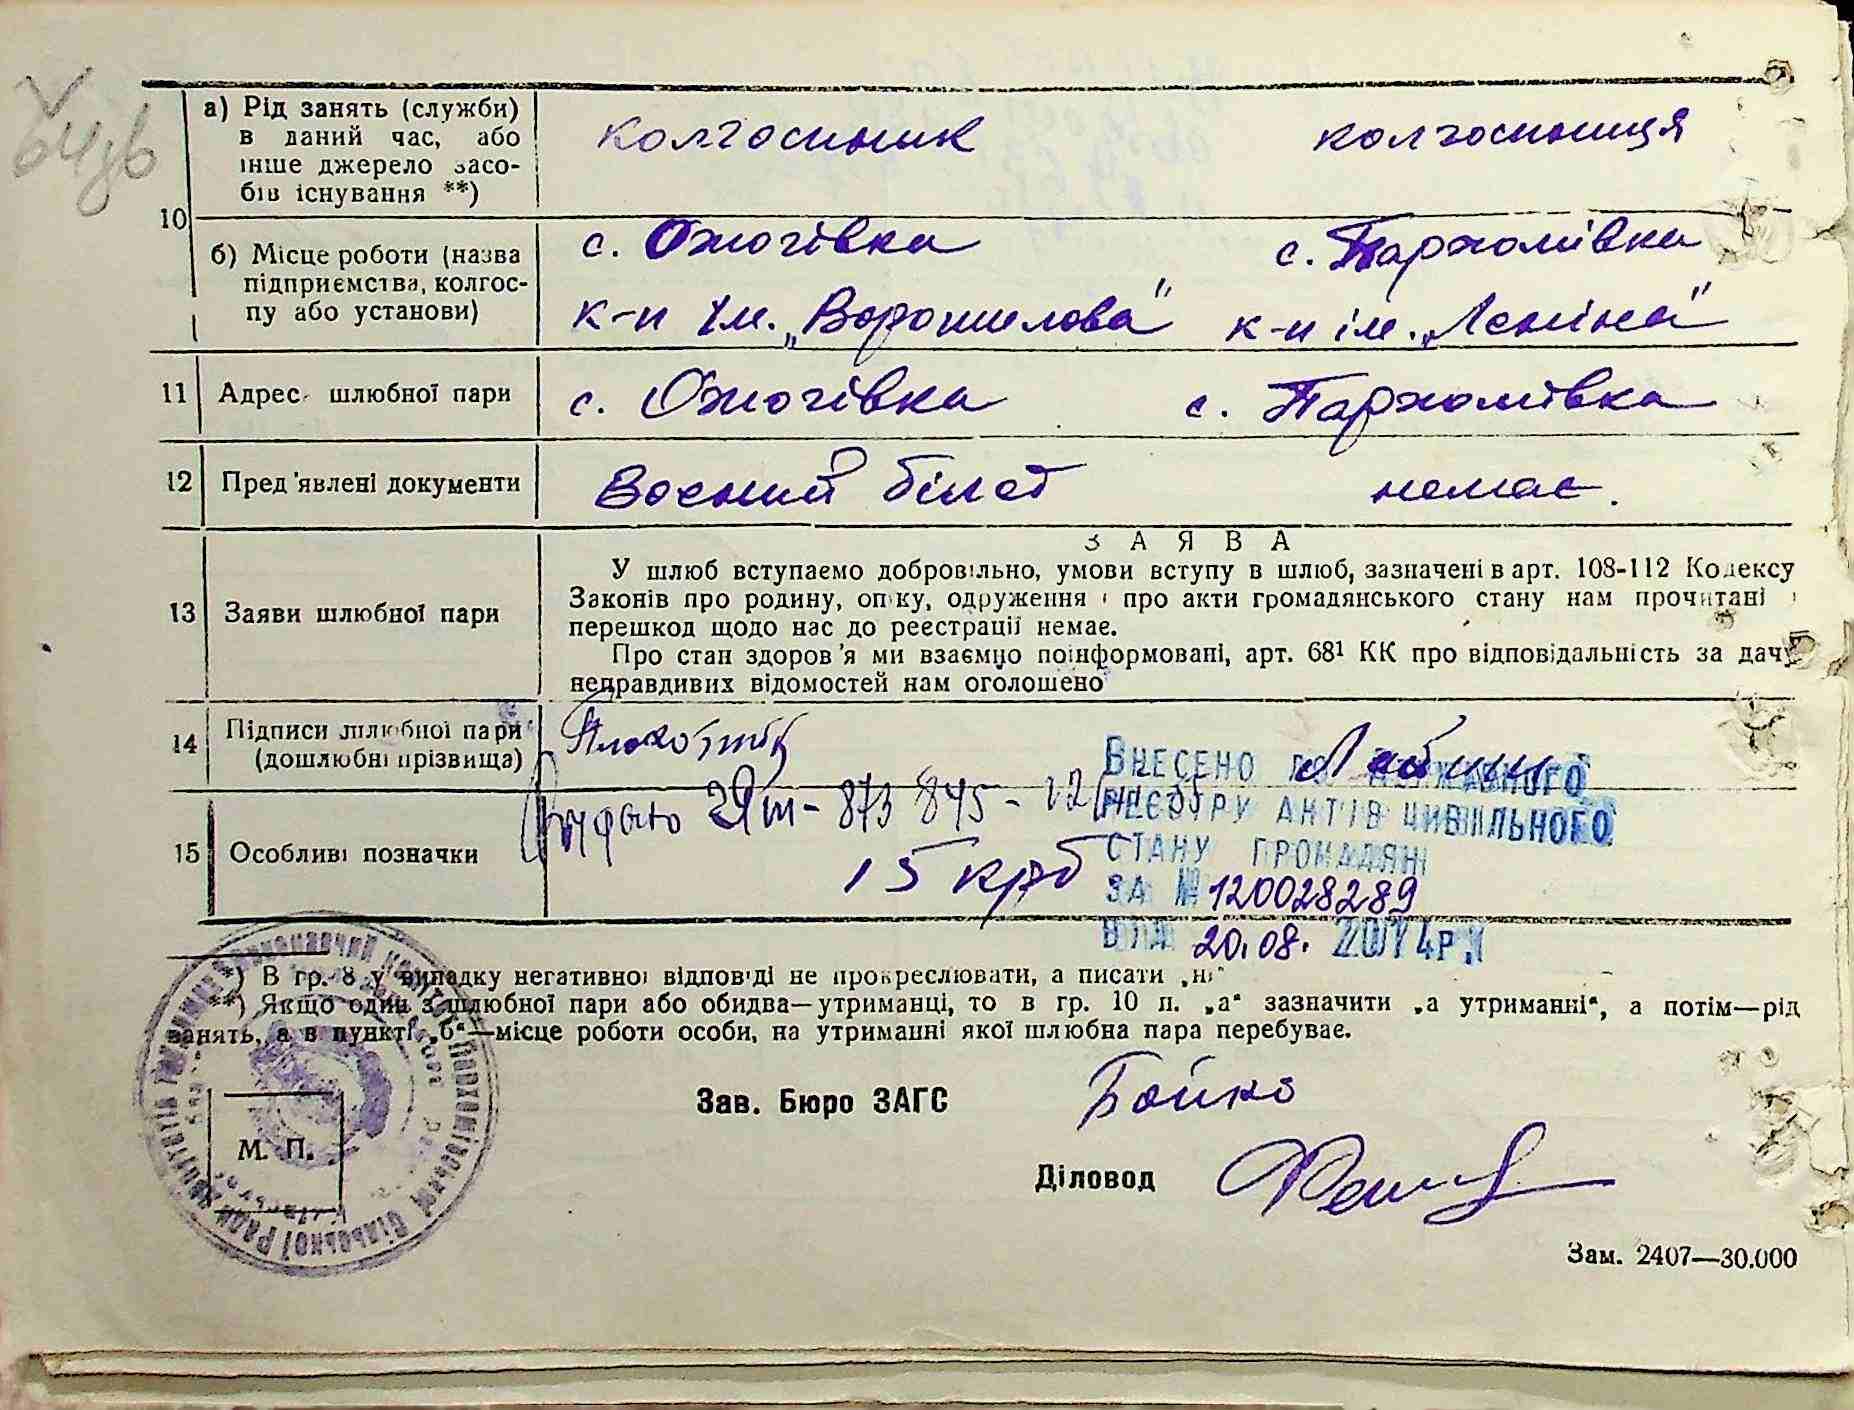 10
а) Рід занять (служби)
в даний час, або
інше джерело засо-
бів існування **)
колгоспник колгоспниця
б) Місце роботи (назва
підприємства, колгос-
пу або установи)
с. Ожогівка с. Пархомівка
к-п ім. „Ворошилова" к-п ім. „Леніна"
11 Адрес шлюбної пари с. Ожогівка с. Пархомівка
12 Пред'явлені документи Воєний білет немає.
ЗАЯВА
13 Заяви шлюбної пари
У шлюб вступаємо добровільно, умови вступу в шлюб, зазначені в арт. 108-112 Кодексу
Законів про родину, опіку, одруження і про акти громадянського стану нам прочитані і
перешкод щодо нас до реєстрації немає.
Про стан здоров'я ми взаємно поінформовані, арт. 68¹ КК про відповідальність за дачу
неправдивих відомостей нам оголошено
14 Підписи шлюбної пари
(дошлюбні прізвища)
ВНЕСЕНО ДО ДЕРЖАВНОГО
РЕЄСТРУ АКТІВ ЦИВІЛЬНОГО
СТАНУ ГРОМАДЯН
ЗА № 1200283289
ВІД 20.08. 2014р.
15 Особливі позначки
873 845
15 крб
*) В гр. 8 у випадку негативної відповіді не прокреслювати, а писати „ні"
**) Якщо один з шлюбної пари або обидва—утриманці, то в гр. 10 п. „а" зазначити „а утриманні", а потім—рід
занять, а в пункті „б"—місце роботи особи, на утриманні якої шлюбна пара перебуває.
Зав. Бюро ЗАГС Бойко
М. П.
Діловод
Зам. 2407—30.000